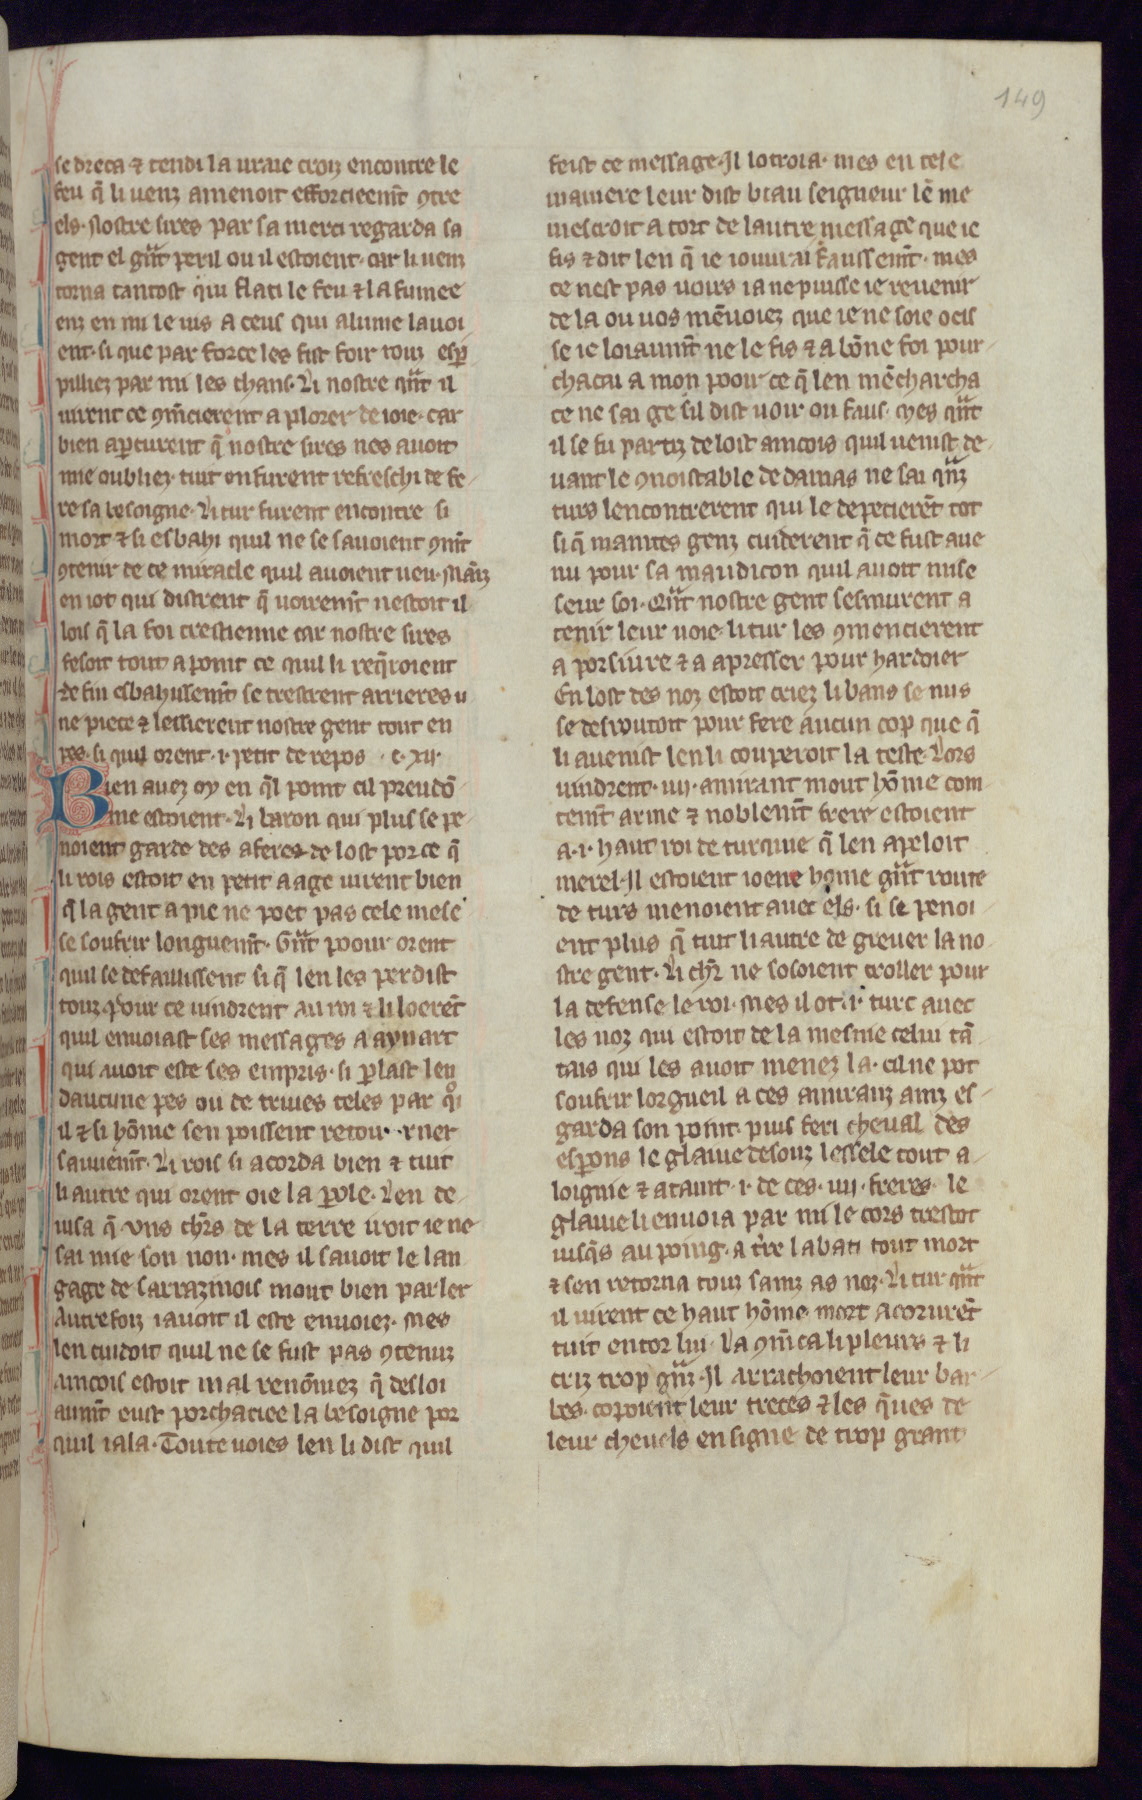 149
se dreca ⁊ tendi la uraie croiz encontre le
feu q̄ li uenz amenoit efforcieem̄t ꝯtre
els. Nostre sires par sa merci regarda sa
gent el gr̄nt peril ou il estoient. car li uenz
torna tantost qui flati le feu ⁊ la fumee
enz en mi le uis a ceus qui alume lauoi
ent. si que par force les fist foir touz esp̱
pilliez par mi les chans. Li nostre qn̄t il
uirent ce ꝯm̄cierent a plorer de ioie. car
bien aꝑcurent q̄ nostre sires nes auoit
mie oubliez. tuit en furent refreschi de fe
re sa besoigne. Li tur furent encontre si
mort ⁊ si esbahi quil ne se sauoient ꝯm̄t
ꝯtenir de ce miracle quil auoient ueu. Māiz
en iot qui distrent q̄ uoirem̄t nestoit il
lois q̄ la foi crestienne car nostre sires
fesoit tout a point ce quil li req̄roient
de fin esbahissem̄t se trestrent arrieres u
ne piece ⁊ lessierent nostre gent tout en
pes. si quil orent .i. petit de repos .c.xii.
Bien auez oy en q̄l point cil preudō
me estoient. Li baron qui plus se pe
noient garde des aferes de lost por ce q̄
li rois estoit en petit aage uirent bien
q̄ la gent a pie ne poet pas cele mese
se soufrir longuem̄t. Gr̄nt poour orent
quil se defaillissent si q̄ len les perdist
touz. Pour ce uindrent au roi ⁊ li loerēt
quil enuoiast ses messages a aynart
qui auoit este ses empris. si ꝑlast len
daucune pes ou de triues teles par qͦi
il ⁊ si hōme sen poissent retour rner
sauuem̄t. Li rois si acorda bien ⁊ tuit
li autre qui orent oie la ꝑole. Len de
uisa q̄ uns chr̄s de la terre iroit ie ne
sai mie son non. mes il sauoit le lan
gage de sarrazinois mout bien parler
Autrefoiz iauoit il este enuoiez. Mes
len cuidoit quil ne se fust pas ꝯtenuz
aincois estoit mal renōmez q̄ desloi
aum̄t eust porchaciee la besoigne por
quil iala. Toute uoies len li dist quil
feist ce message. Il lotroia. mes en tele
maniere leur dist biau seigneur lē me
mescroit a tort de lautre message que ie
fis ⁊ dit len q̄ ie iouurai faussem̄t. mes
ce nest pas uoirs ia ne puisse ie reuenir
de la ou uos mēuoiez que ie ne soie ocis
se ie loiaum̄t ne le fis ⁊ a bōne foi pour
chacai a mon pooir ce q̄ len mēcharcha
ce ne sai ge sil dist uoir ou faus. Mes qn̄t
il se fu partiz de lost aincois quil uenist de
uant le ꝯnoistable de damas ne sai qn̄z
turs lencontrerent qui le depecierēt tot
si q̄ maintes genz cuiderent q̄ ce fust aue
nu pour sa maudicon quil auoit mise
seur soi. Qn̄t nostre gent sesmurent a
tenir leur uoie. li tur les ꝯmencierent
a porsiure ⁊ a apresser pour hardoier
En lost des noz estoit criez li bans se nus
se desroutoit pour fere aucun cop que q̄
li auenist len li couperoit la teste. Lors
uindrent .iiii. amirant mout hōme com
tem̄t arme ⁊ noblem̄t frere estoient
a .i. haut roi de turquie q̄ len apeloit
merel. Il estoient ioene home gr̄nt route
de turs menoient auec els. si se penoi
ent plus q̄ tuit li autre de greuer la no
stre gent. Li chr̄ ne sosoient croller pour
la defense le roi. Mes il ot .i. turc auec
les noz qui estoit de la mesnie celui tā
tais qui les auoit menez la. cil ne pot
soufrir lorgueil a ces amiranz ainz es
garda son point. puis feri cheual des
esꝑons le glaiue desouz lessele tout a
loignie ⁊ ataint .i. de ces .iiii. freres. le
glaiue li enuoia par mi le cors trestot
iusq̄s au poing. a t̄re labati tout mort
⁊ sen retorna touz sainz as noz. Li tur qn̄t
il uirent ce haut hōme mort acorurēt
tuit entor lui. La ꝯm̄ca li pleurs ⁊ li
criz trop gr̄nz. Il arrachoient leur bar
bes. copoient leur treces ⁊ les q̄ues de
leur cheuels en signe de trop grant